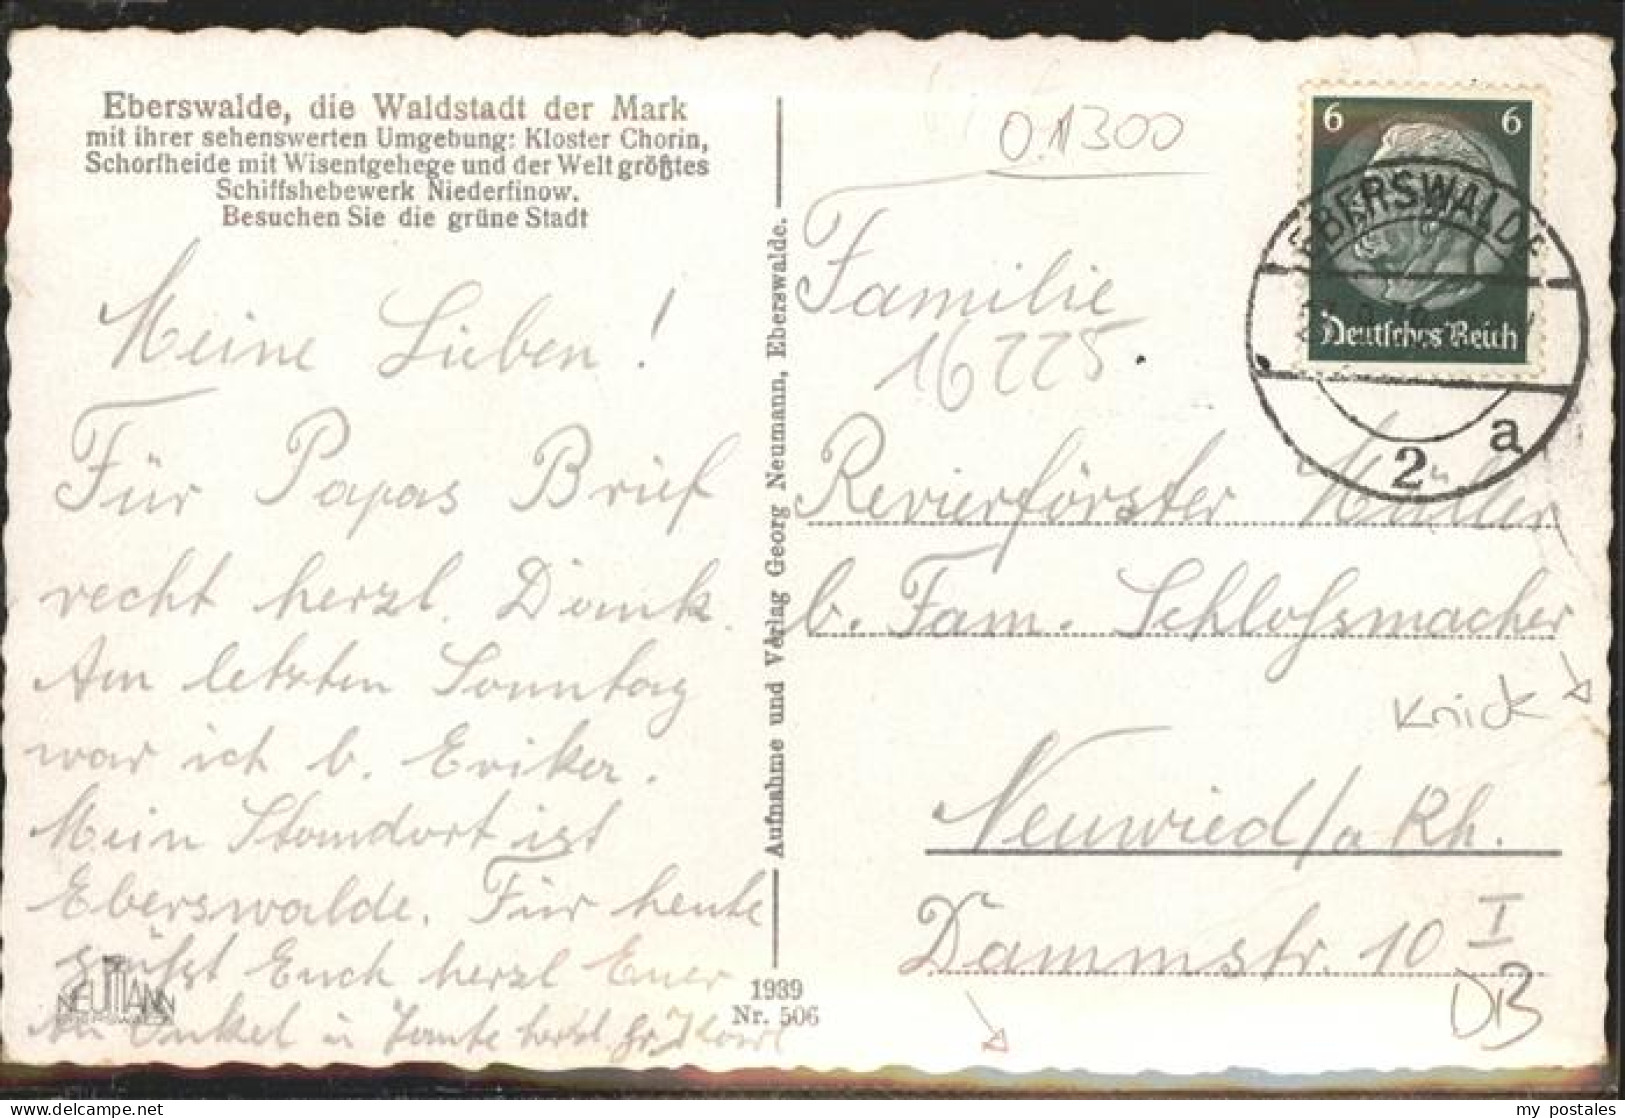 Eberswalde, die Waldstadt der Mark
mit ihrer sehenswerten Umgebung: Kloster Chorin,
Schorfheide mit Wisentgehege und der Welt größtes
Schiffshebewerk Niederfinow.
Besuchen Sie die grüne Stadt
Meine Lieben!
Für Papas Brief
recht herzl. Dank.
Am letzten Sonntag
war ich b. Eriker.
Mein Standort ist
Eberswalde. Für heute
grüßt Euch herzl Euer
Onkel u Tante herzl. Gr.
NEUMANN
Aufnahme und Verlag Georg Neumann, Eberswalde.
1939
Nr. 506
0.1300
6 6
Deutsches Reich
EBERSWALDE
2 a
Familie
16225.
Revierförster Müller
b. Fam. Schloßmacher
Knick
Neuwied/a Rh.
Dammstr. 10 I
DB
my postales